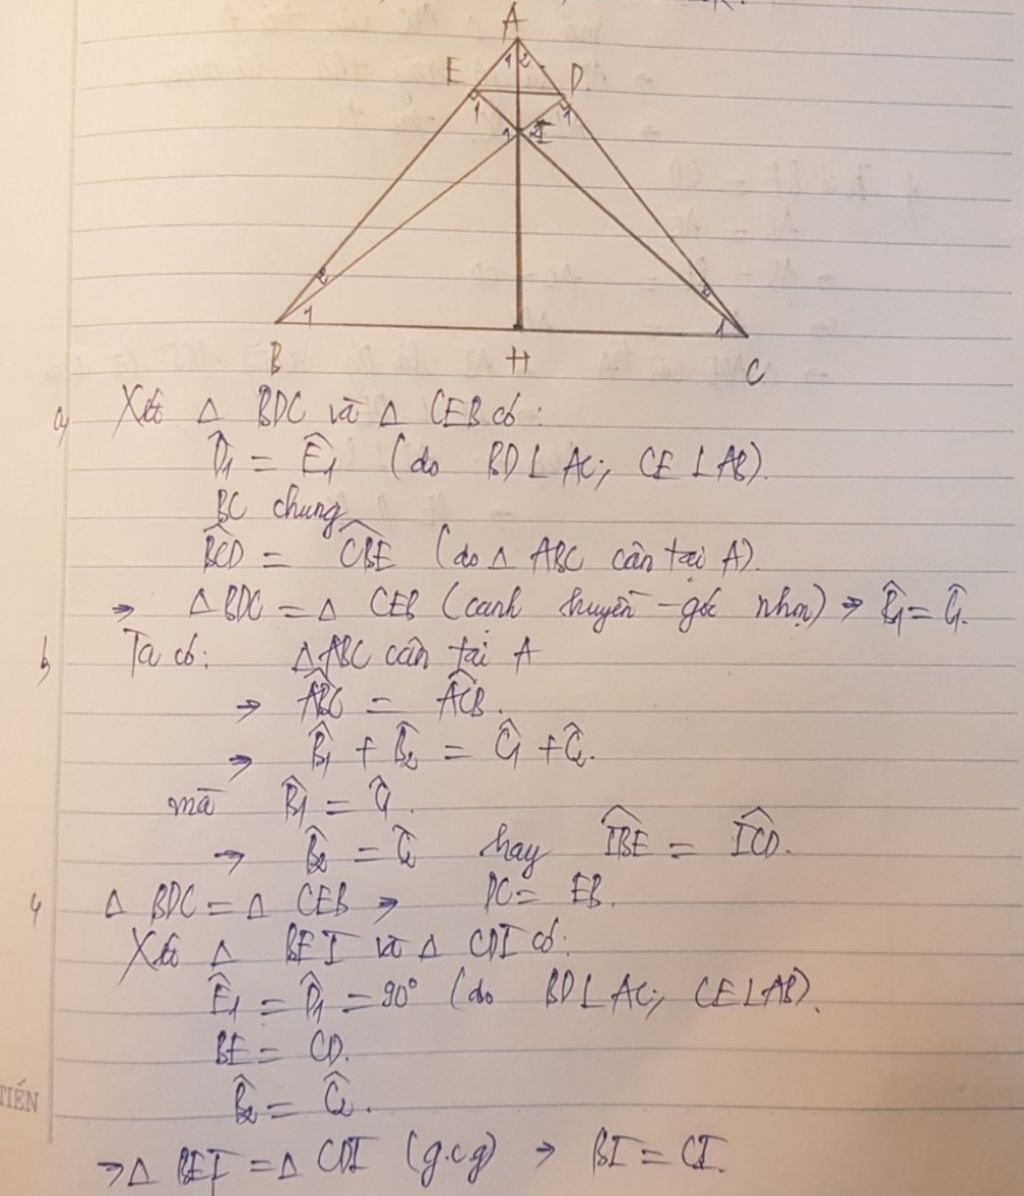 A
E
1 2
D
1
1
1 2 I
2
2
1
1
B
H
C
a, Xét △ BDC và △ CEB có:
D̂₁ = Ê₁ (do BD ⊥ AC; CE ⊥ AB).
BC chung
B̂CD = ĈBE (do △ ABC cân tại A).
⇒ △ BDC = △ CEB (cạnh huyền - góc nhọn) ⇒ B̂₁ = Ĉ₁.
b, Ta có: △ ABC cân tại A
⇒ ÂBC = ÂCB.
⇒ B̂₁ + B̂₂ = Ĉ₁ + Ĉ₂.
mà B̂₁ = Ĉ₁.
⇒ B̂₂ = Ĉ₂ hay ÎBE = ÎCD.
c, △ BDC = △ CEB ⇒ DC = EB.
Xét △ BEI và △ CDI có:
Ê₁ = D̂₁ = 90° (do BD ⊥ AC; CE ⊥ AB).
BE = CD.
B̂₂ = Ĉ₂.
TIẾN
⇒ △ BEI = △ CDI (g.c.g) ⇒ BI = CI.